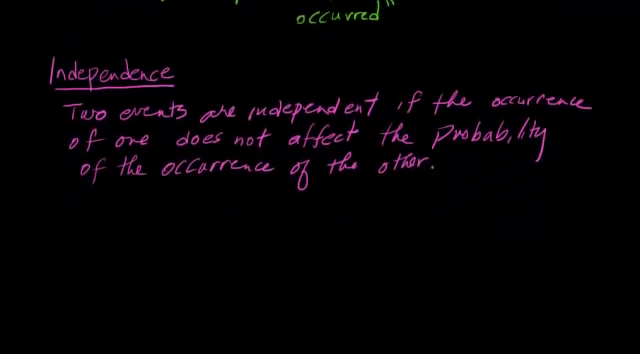 occurred"
Independence
Two events are independent if the occurrence
of one does not affect the Probability
of the occurrence of the other.